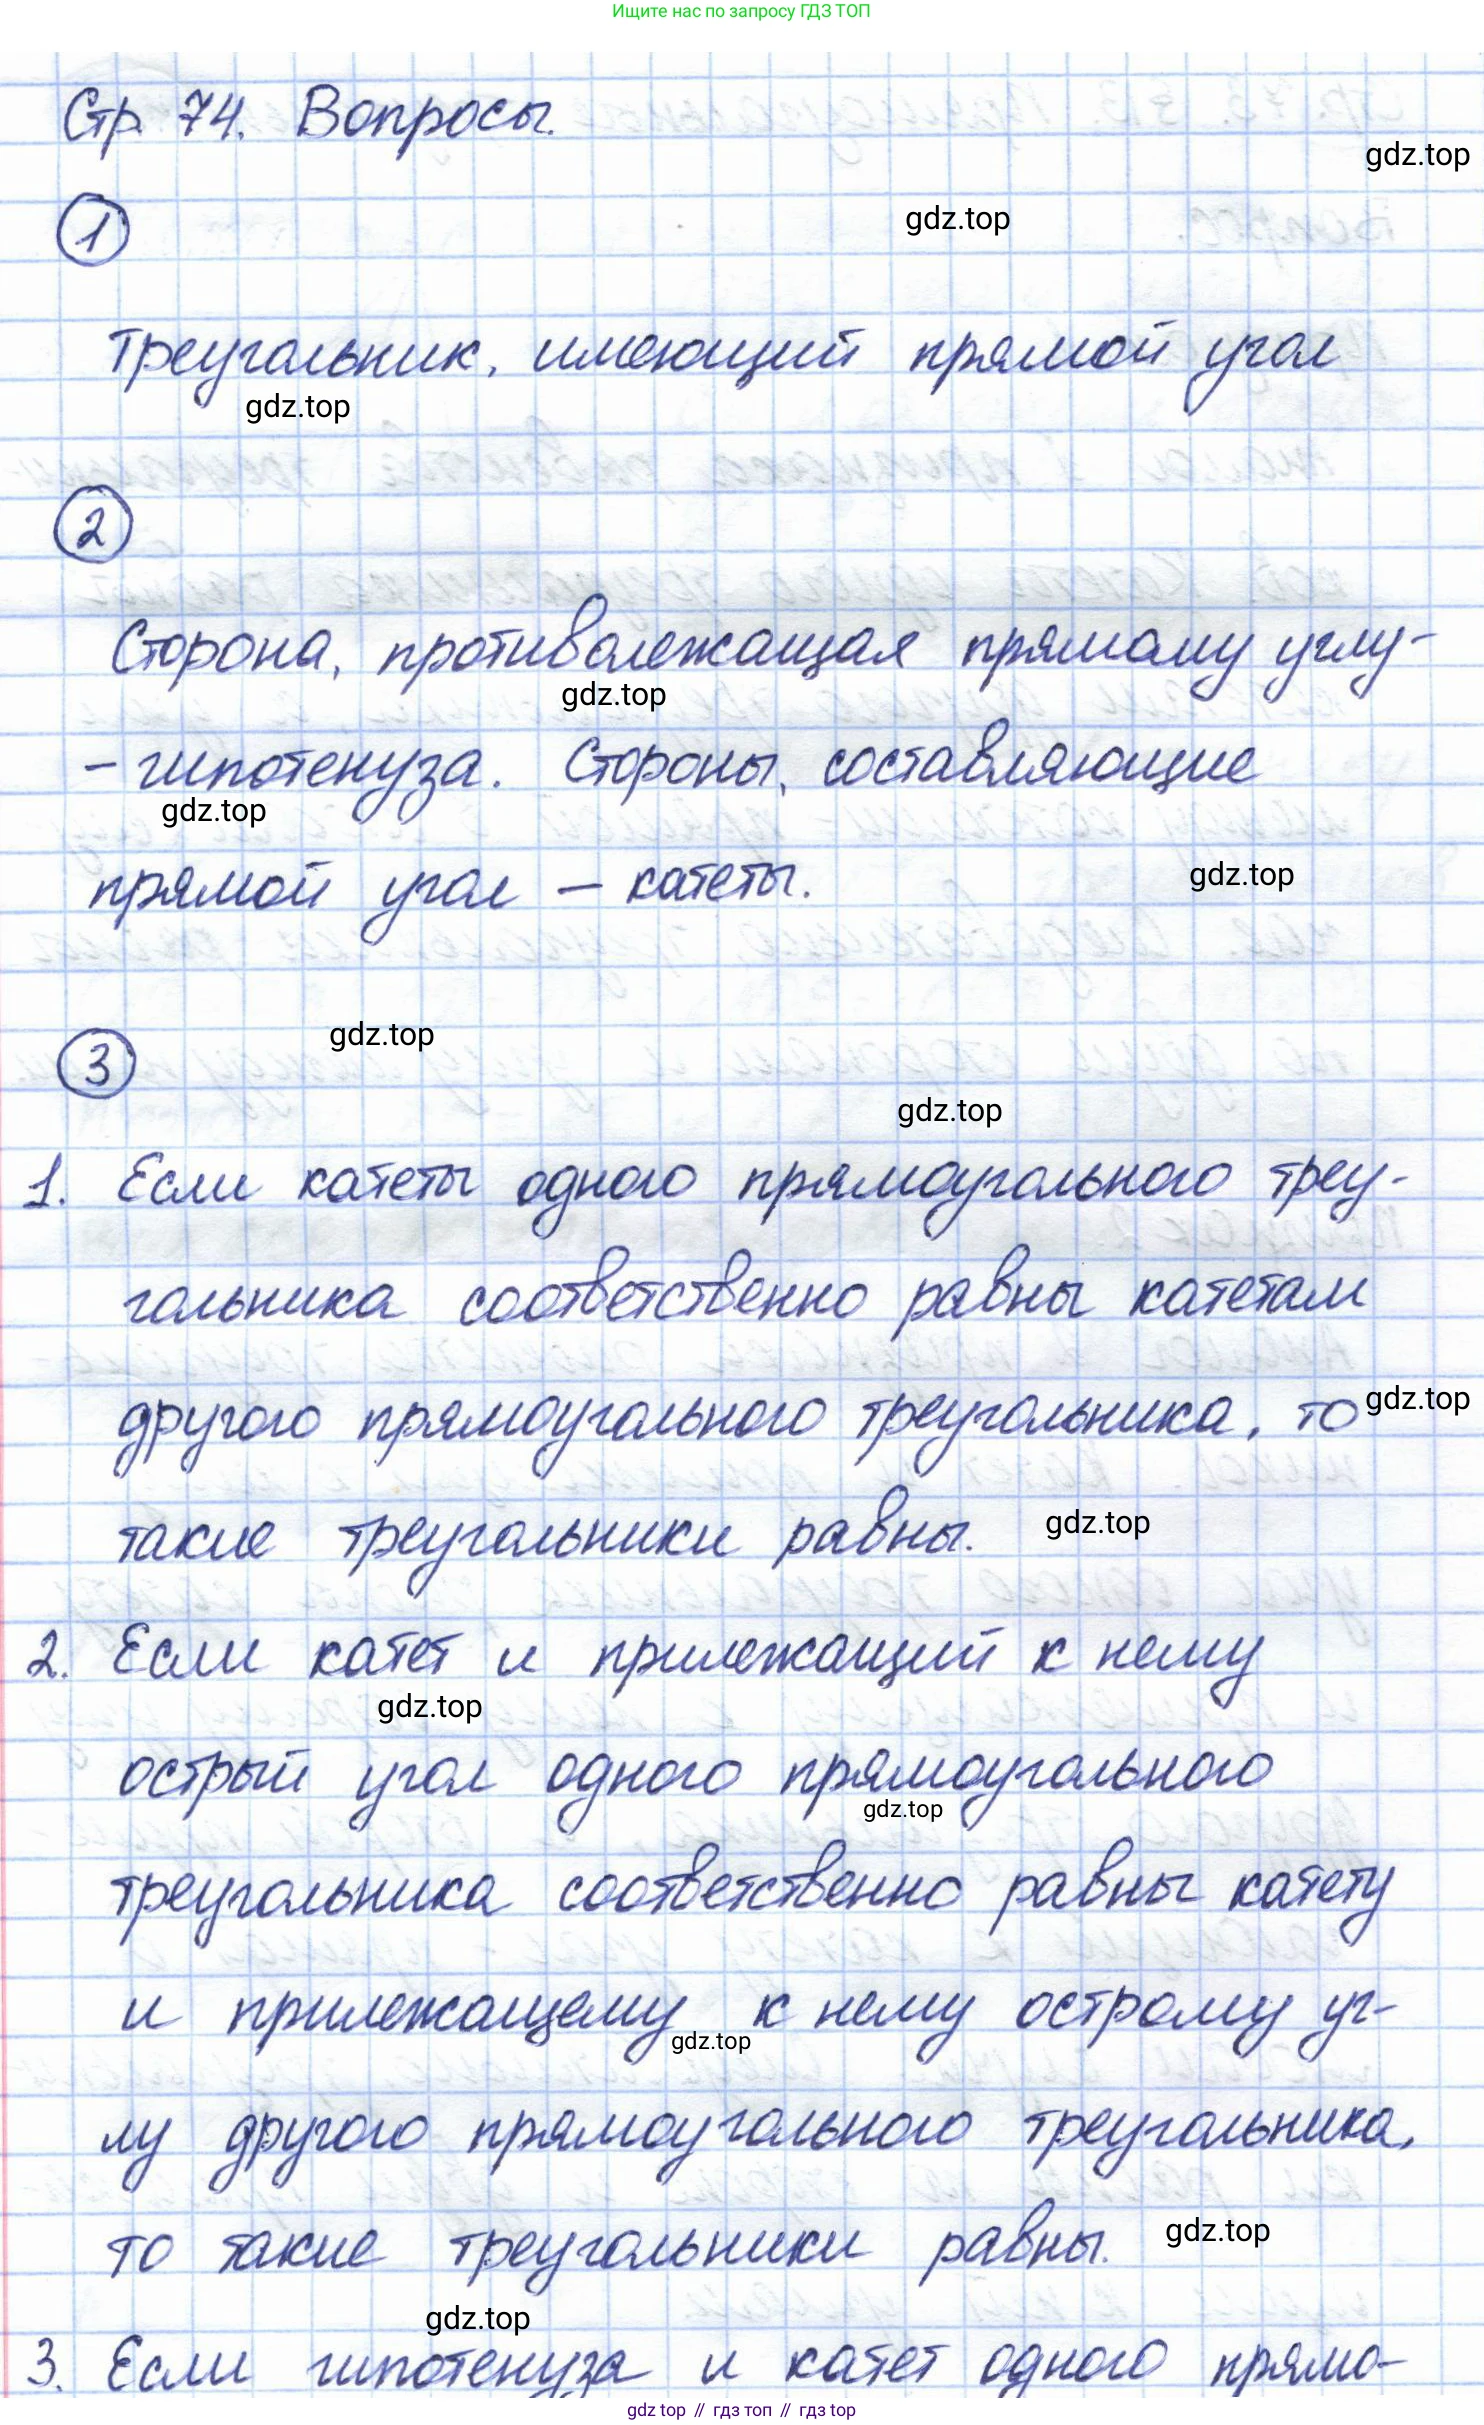 Ищите нас по запросу ГДЗ ТОП
Стр. 74. Вопросы.
gdz.top
1
gdz.top
Треугольник, имеющий прямой угол
gdz.top
2
Сторона, противолежащая прямому углу-
gdz.top
- гипотенуза. Стороны, составляющие
gdz.top
прямой угол – катеты.
gdz.top
3
gdz.top
gdz.top
1. Если катеты одного прямоугольного треу-
гольника соответственно равны катетам
другого прямоугольного треугольника, то
gdz.top
такие треугольники равны.
gdz.top
2. Если катет и прилежащий к нему
gdz.top
острый угол одного прямоугольного
gdz.top
треугольника соответственно равны катету
и прилежащему к нему острому уг-
gdz.top
лу другого прямоугольного треугольника,
то такие треугольники равны.
gdz.top
gdz.top
3. Если гипотенуза и катет одного прямо-
gdz.top // гдз топ // гдз top